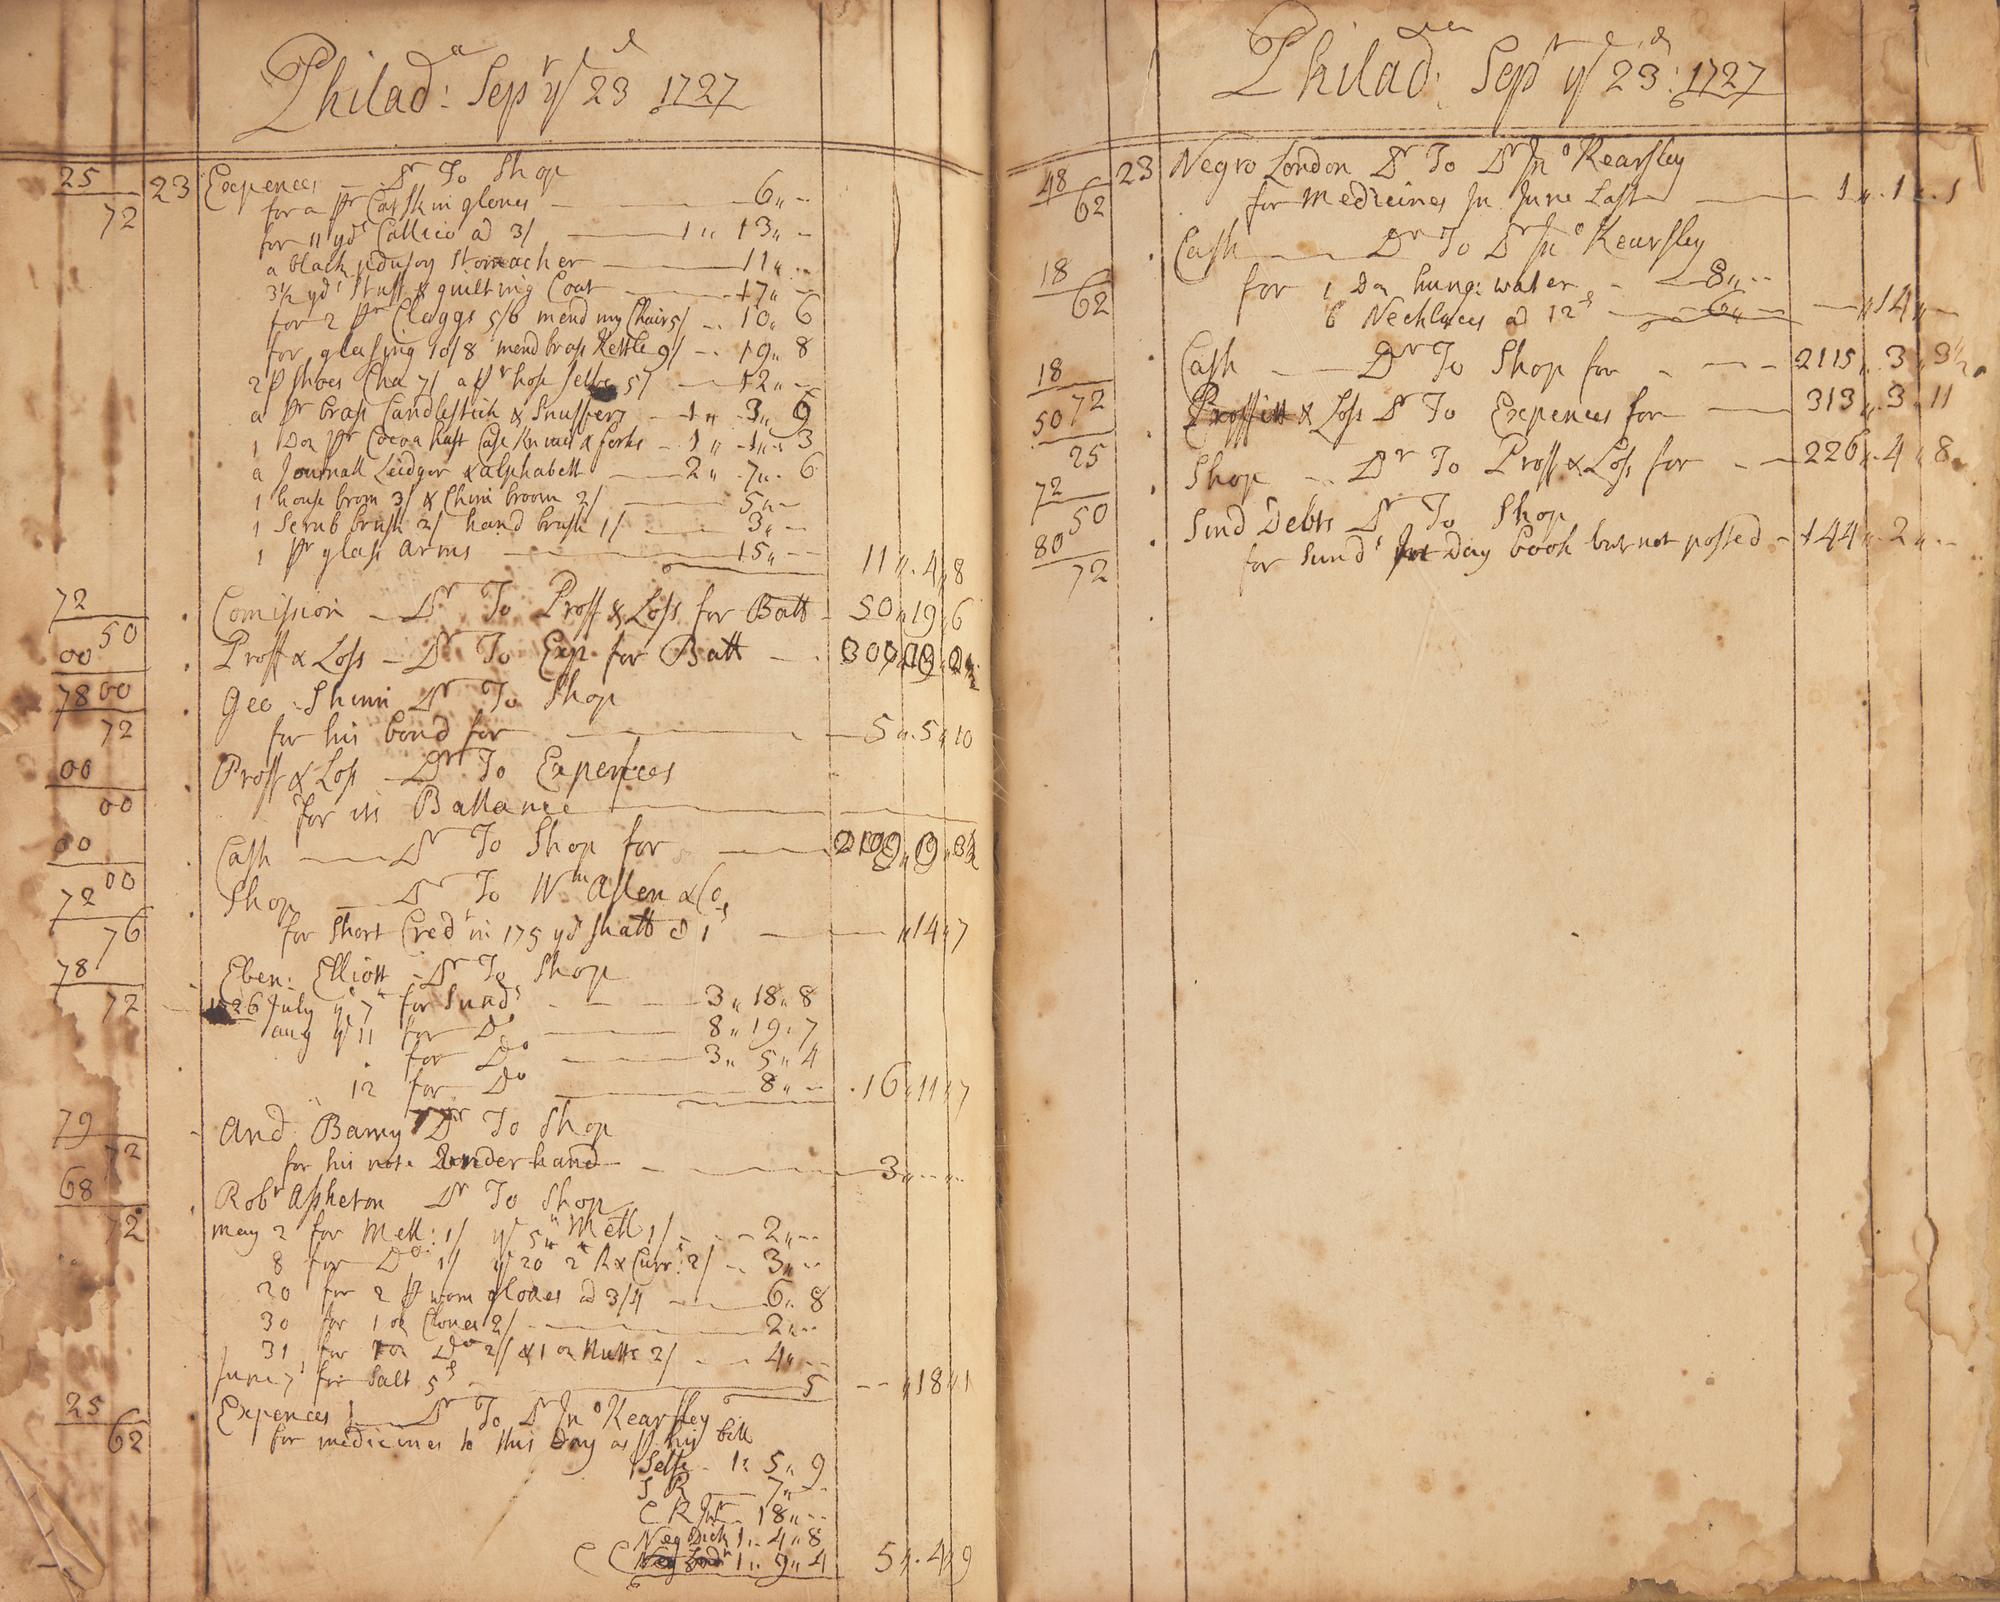 Philad:a Sepr ye 23d 1727
25/72 23 Expences – Dr To Shop
for a pr Catskin gloves — 6,,--
for 11 yds Callico ad 3/ — 1,,13,,-
a black padusoy Stomacher — 11,,--
3½ yds Stuff & quilting Coat — 17,,--
for 2 pr Claggs 5/6 mend my Chair 5/ -- 10,,6
for glasing 10/8 mend brass Kettle 9/ -- 19,,8
2 p Shoes Cha 7/ a pr hose selfe 5/ — 12,,-
a pr brass Candlestick & Snuffers – 1,,3,,6
1 Doz pr Cocoa haft Case Knives & forks – 1,,1,,3
a Journall Leidger & alphabett — 2,,7,,6
1 house broom 3/ & Chim broom 2/ — 5,,--
1 Scrub brush 2/ hand brush 1/ — 3,,-
1 pr glass arms — 15,,-- 11,,4,,8
72/50 Comission – Dr To Proff & Loss for Batt – 50,,19,,6
00/00 Proff & Loss – Dr To Exp. for Batt —
78/72 Geo Shinn Dr To Shop
for his bond for — 5,,5,,10
00/00 Proff & Loss – Dr To Expences
for its Ballance —
00/00 Cash — Dr To Shop for —
72/76 Shop — Dr To Wm Allen & Co,
for Short Credt in 175 yds Shatt @ 1d — ,,14,,7
78/72 Eben: Elliott – Dr To Shop
1726 July ye 7th for Sunds — 3,,18,,8
aug ye 11 for Do — 8,,19,,7
for Do — 3,,5,,4
12 for Do — 8,,-- 16,,11,,7
79/72 And Barny Dr To Shop
for his note under hand — 3,,--,,--
68/72 Robt Assheton Dr To Shop
may 2 for Mell: 1/ ye 5th Mell 1/ - - - 2,,--
8 for Do 1/ ye 20th 2tt R & Curr:s 2/ -- 3,,--
20 for 2 pr wom gloves ad 3/4 — 6,,8
30 for 1 oz Cloves 2/ — 2,,--
31 for 1 oz Do 2/ & 1 oz Nutts 2/ -- 4,,--
June 7 for Salt 5d — 5 -- ,,18,,1
25/62 Expences — Dr To Dr Jno Kearsley
for medicines to this Day as pr his bill
Selfe – 1,,5,,9
S R — 7,,-
C R Junr – 18,,--
Neg Dick 1,,4,,8
Neg Londn 1,,9,,4 5,,4,,9
Philad:a Sepr ye 23d: 1727
48/62 23 Negro London Dr To Dr Jno Kearsley
for medicines In June Last — 1,,1,,1
18/62 Cash — Dr To Dr Jno Kearsley
for 1 Doz hung: water – 8,,--
6 Necklaces ad 12d — 6,, — ,,14,,-
18/72 Cash — Dr To Shop for - -- 2115,,3,,3½
50/25 Proffitt & Loss Dr To Expences for — 313,,3,,11
72/50 Shop -- Dr To Proff & Loss for -- 226,,4,,8
80/72 Sund Debts Dr To Shop
for Sunds pr Day book but not posted – 144,,2,,--